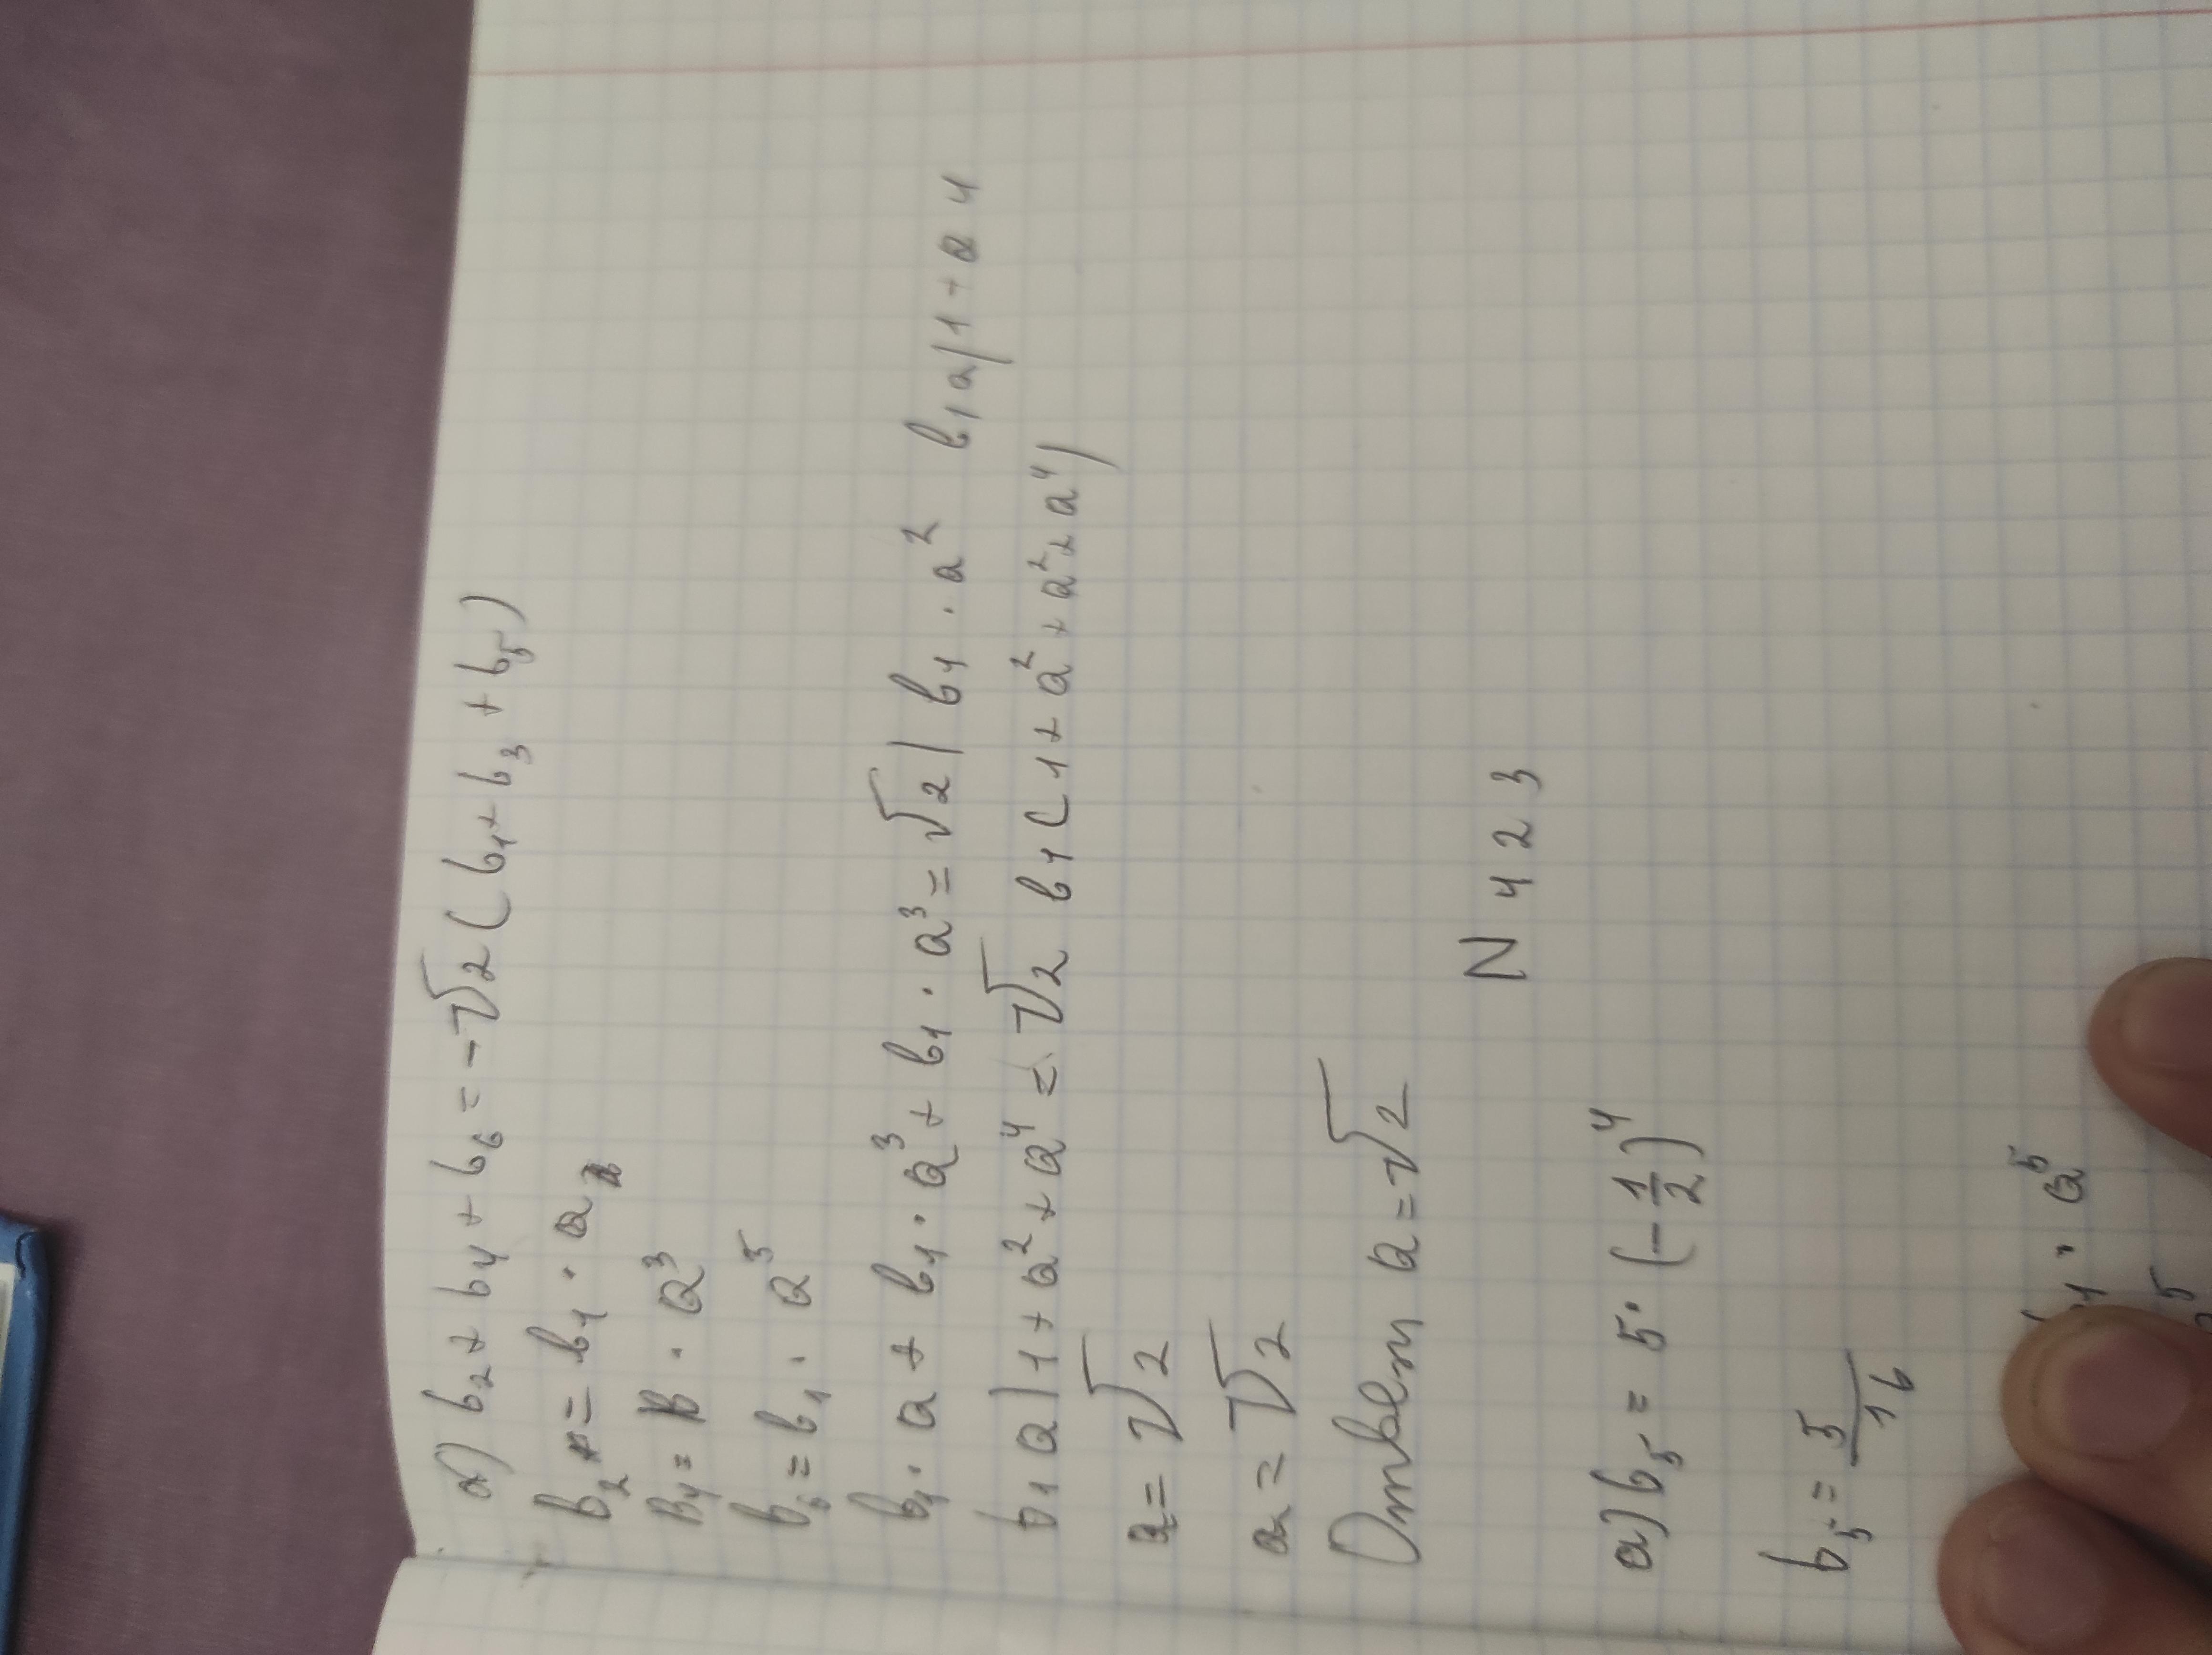 а) b₂ + b₄ + b₆ = -√2 (b₁ + b₃ + b₅)
b₂ = b₁ · q
b₄ = b · q³
b₆ = b₁ · q⁵
b₁ · q + b₁ · q³ + b₁ · q³ = √2 ( b₁ · q² b₁q(1 + q 4
b₁q(1 + q² + q⁴ = √2 b₁(1 + q² + q² + q⁴)
q = √2
q = √2
Ответ q = √2
N 423
а) b₅ = 5 · (-1/2)⁴
b₅ = 5/16
1 · q⁵
5